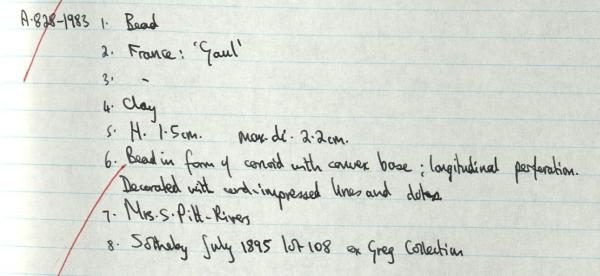 A.828-1983 1. Bead
2. France: 'Gaul'
3. -
4. Clay
5. H. 1.5cm. max. di. 2.2cm.
6. Bead in form of conoid with convex base; longitudinal perforation.
Decorated with cord-impressed lines and dots
7. Mrs. S. Pitt-Rivers
8. Sotheby July 1895 lot 108 ex Greg Collection